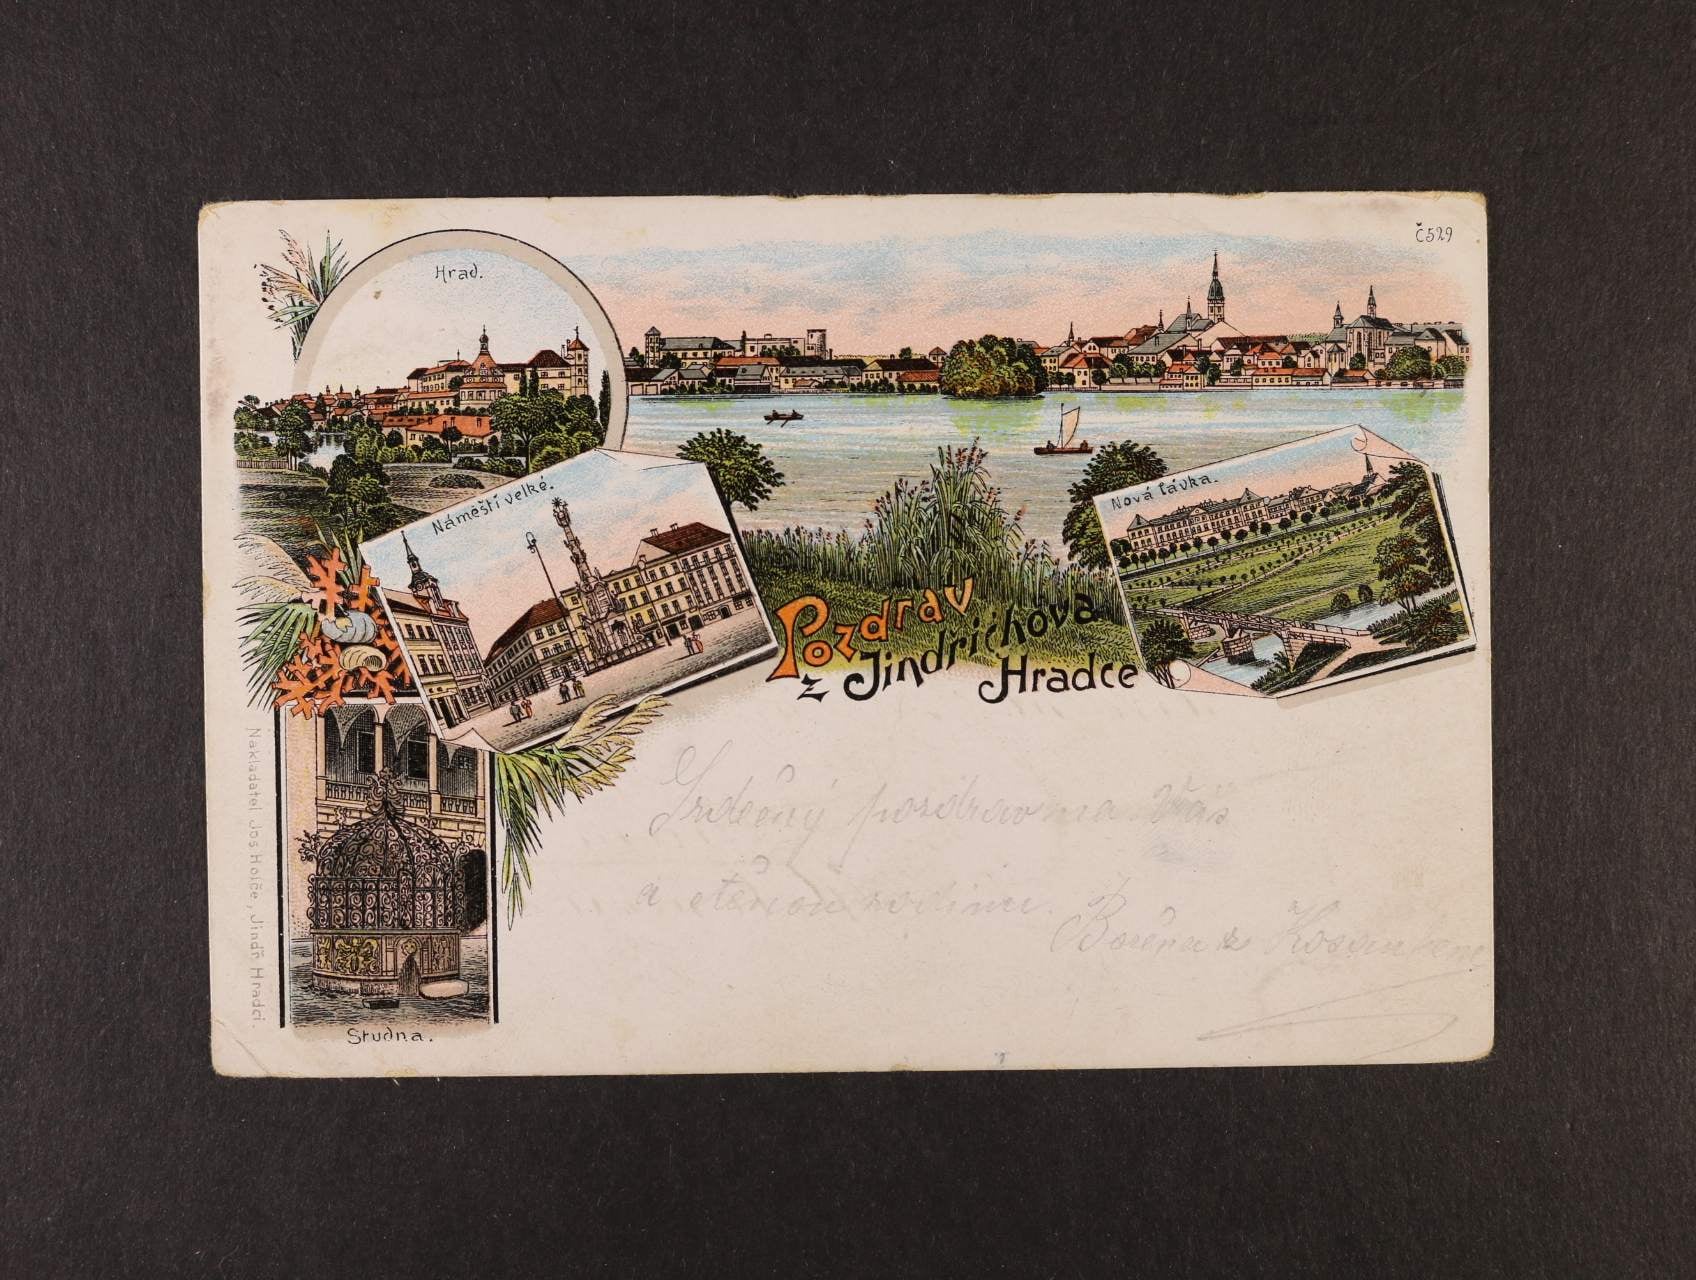 Č529
Hrad.
Náměstí velké.
Nová lávka.
Pozdrav
z Jindřichova
Hradce
Studna.
Nakladatel Jos Holče, Jindř. Hradci.
Srdečný pozdrav na Vás
a ctěnou rodinu.
Božena